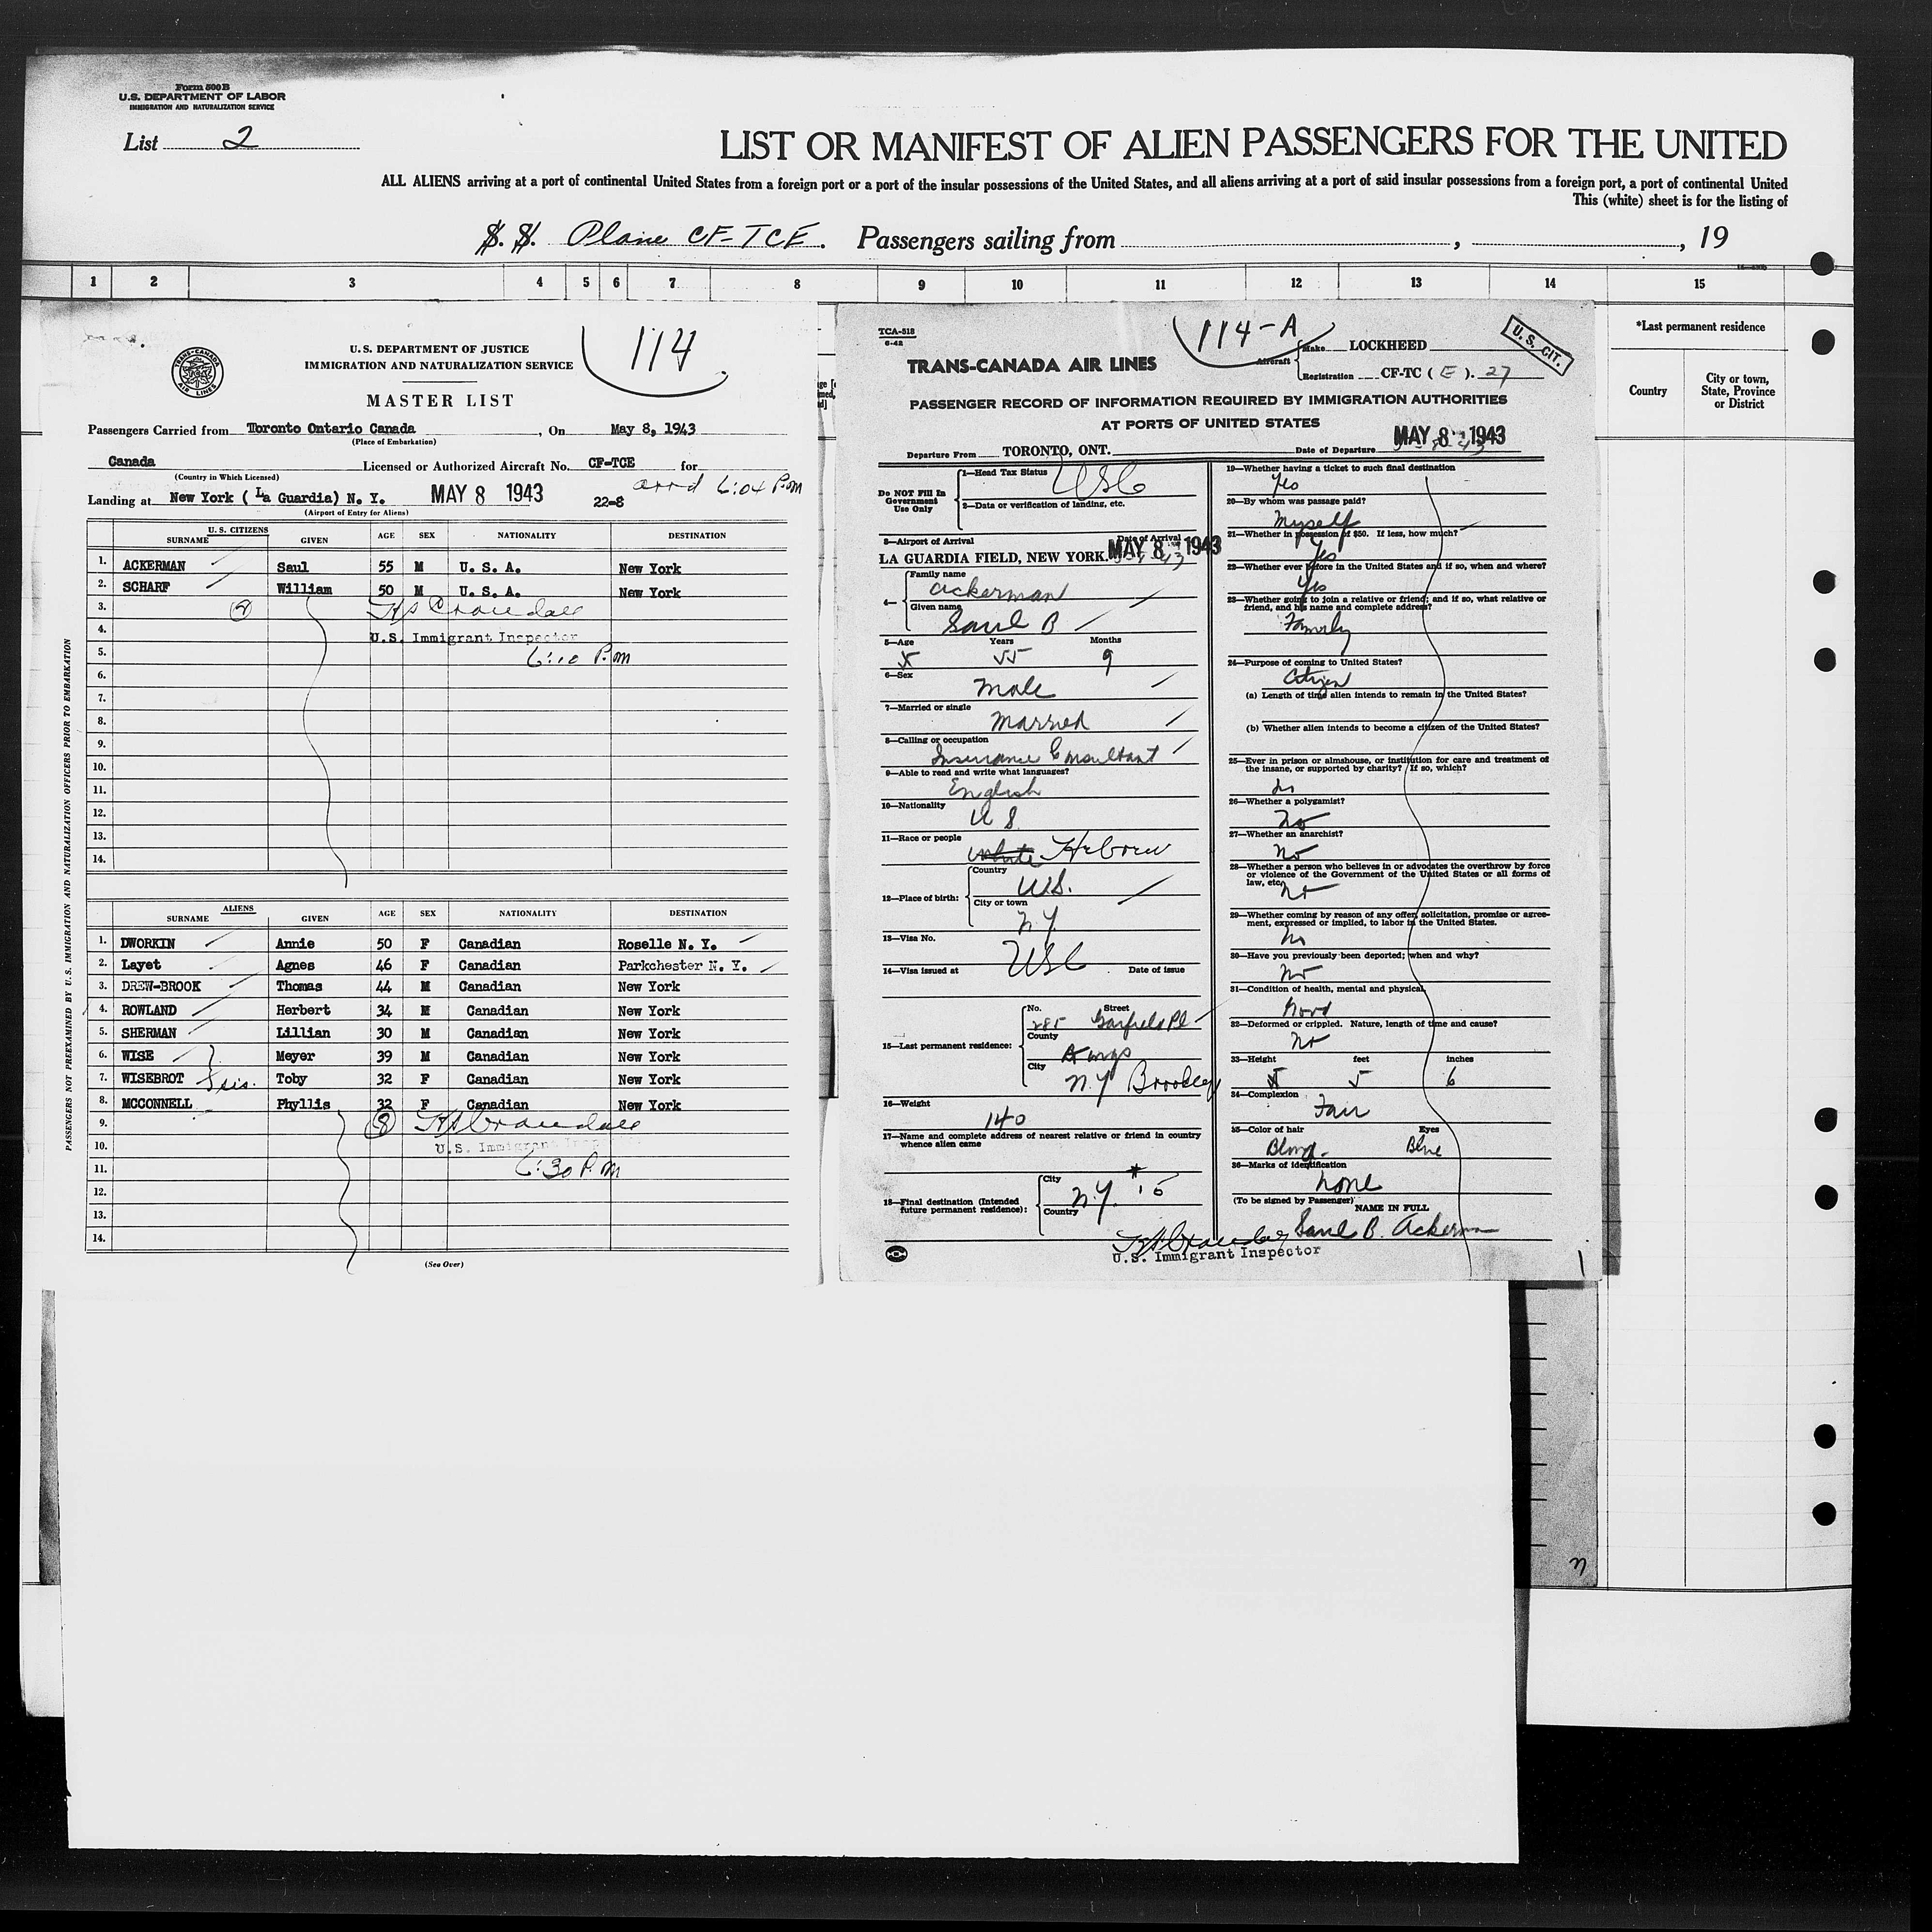 Form 500 B
U.S. DEPARTMENT OF LABOR
IMMIGRATION AND NATURALIZATION SERVICE
List 2
LIST OR MANIFEST OF ALIEN PASSENGERS FOR THE UNITED
ALL ALIENS arriving at a port of continental United States from a foreign port or a port of the insular possessions of the United States, and all aliens arriving at a port of said insular possessions from a foreign port, a port of continental United
This (white) sheet is for the listing of
S. S. Plane CF-TCE. Passengers sailing from , , 19
1 2 3 4 5 6 7 8 9 10 11 12 13 14 15
*Last permanent residence
Country
City or town, State, Province or District
TRANS-CANADA AIR LINES
U.S. DEPARTMENT OF JUSTICE
IMMIGRATION AND NATURALIZATION SERVICE
114
MASTER LIST
Passengers Carried from Toronto Ontario Canada, On May 8, 1943
(Place of Embarkation)
Canada Licensed or Authorized Aircraft No. CF-TCE for
(Country in Which Licensed)
arrd 6:04 P.m
Landing at New York ( La Guardia) N. Y. MAY 8 1943 22-8
(Airport of Entry for Aliens)
U.S. CITIZENS
SURNAME GIVEN AGE SEX NATIONALITY DESTINATION
1. ACKERMAN Saul 55 M U. S. A. New York
2. SCHARF William 50 M U. S. A. New York
3. 2
4. U.S. Immigrant Inspector
5. 6:10 P.m
6.
7.
8.
9.
10.
11.
12.
13.
14.
ALIENS
SURNAME GIVEN AGE SEX NATIONALITY DESTINATION
1. DWORKIN Annie 50 F Canadian Roselle N. Y.
2. Layet Agnes 46 F Canadian Parkchester N. Y.
3. DREW-BROOK Thomas 44 M Canadian New York
4. ROWLAND Herbert 34 M Canadian New York
5. SHERMAN Lillian 30 M Canadian New York
6. WISE Meyer 39 M Canadian New York
7. WISEBROT sis. Toby 32 F Canadian New York
8. MCCONNELL Phyllis 32 F Canadian New York
9. 8
10. U.S. Immigrant Insp
11. 6:30 P.m
12.
13.
14.
(See Over)
PASSENGERS NOT PREEXAMINED BY U.S. IMMIGRATION AND NATURALIZATION OFFICERS PRIOR TO EMBARKATION
TCA-518
6-42
114-A
U.S. CIT.
TRANS-CANADA AIR LINES
Aircraft
Make LOCKHEED
Registration CF-TC ( E ). 27
PASSENGER RECORD OF INFORMATION REQUIRED BY IMMIGRATION AUTHORITIES
AT PORTS OF UNITED STATES
Departure From TORONTO, ONT. Date of Departure MAY 8 1943
Do NOT Fill In Government Use Only
1—Head Tax Status USC
2—Data or verification of landing, etc.
3—Airport of Arrival Date of Arrival
LA GUARDIA FIELD, NEW YORK. MAY 8 1943
4—
Family name
Ackerman
Given name
Saul B
5—Age Years Months
55 9
6—Sex
Male
7—Married or single
Married
8—Calling or occupation
Insurance Consultant
9—Able to read and write what languages?
English
10—Nationality
U S
11—Race or people
white Hebrew
12—Place of birth:
Country
U.S.
City or town
N.Y.
13—Visa No.
USC
14—Visa issued at Date of issue
15—Last permanent residence:
No. Street
285 Garfield Pl
County
Kings
City
N.Y Brooklyn
16—Weight
140
17—Name and complete address of nearest relative or friend in country whence alien came
18—Final destination (Intended future permanent residence):
City
N.Y. * 15
Country
U.S. Immigrant Inspector
19—Whether having a ticket to such final destination
Yes
20—By whom was passage paid?
Myself
21—Whether in possession of $50. If less, how much?
Yes
22—Whether ever before in the United States and if so, when and where?
Yes
23—Whether going to join a relative or friend; and if so, what relative or friend, and his name and complete address?
Family
24—Purpose of coming to United States?
Citizen
(a) Length of time alien intends to remain in the United States?
(b) Whether alien intends to become a citizen of the United States?
25—Ever in prison or almshouse, or institution for care and treatment of the insane, or supported by charity? If so, which?
No
26—Whether a polygamist?
No
27—Whether an anarchist?
No
28—Whether a person who believes in or advocates the overthrow by force or violence of the Government of the United States or all forms of law, etc.
No
29—Whether coming by reason of any offer, solicitation, promise or agreement, expressed or implied, to labor in the United States.
No
30—Have you previously been deported; when and why?
No
31—Condition of health, mental and physical.
Good
32—Deformed or crippled. Nature, length of time and cause?
No
33—Height feet inches
5 6
34—Complexion
Fair
35—Color of hair Eyes
Blond. Blue
36—Marks of identification
None
(To be signed by Passenger)
NAME IN FULL
Saul B. Ackerman